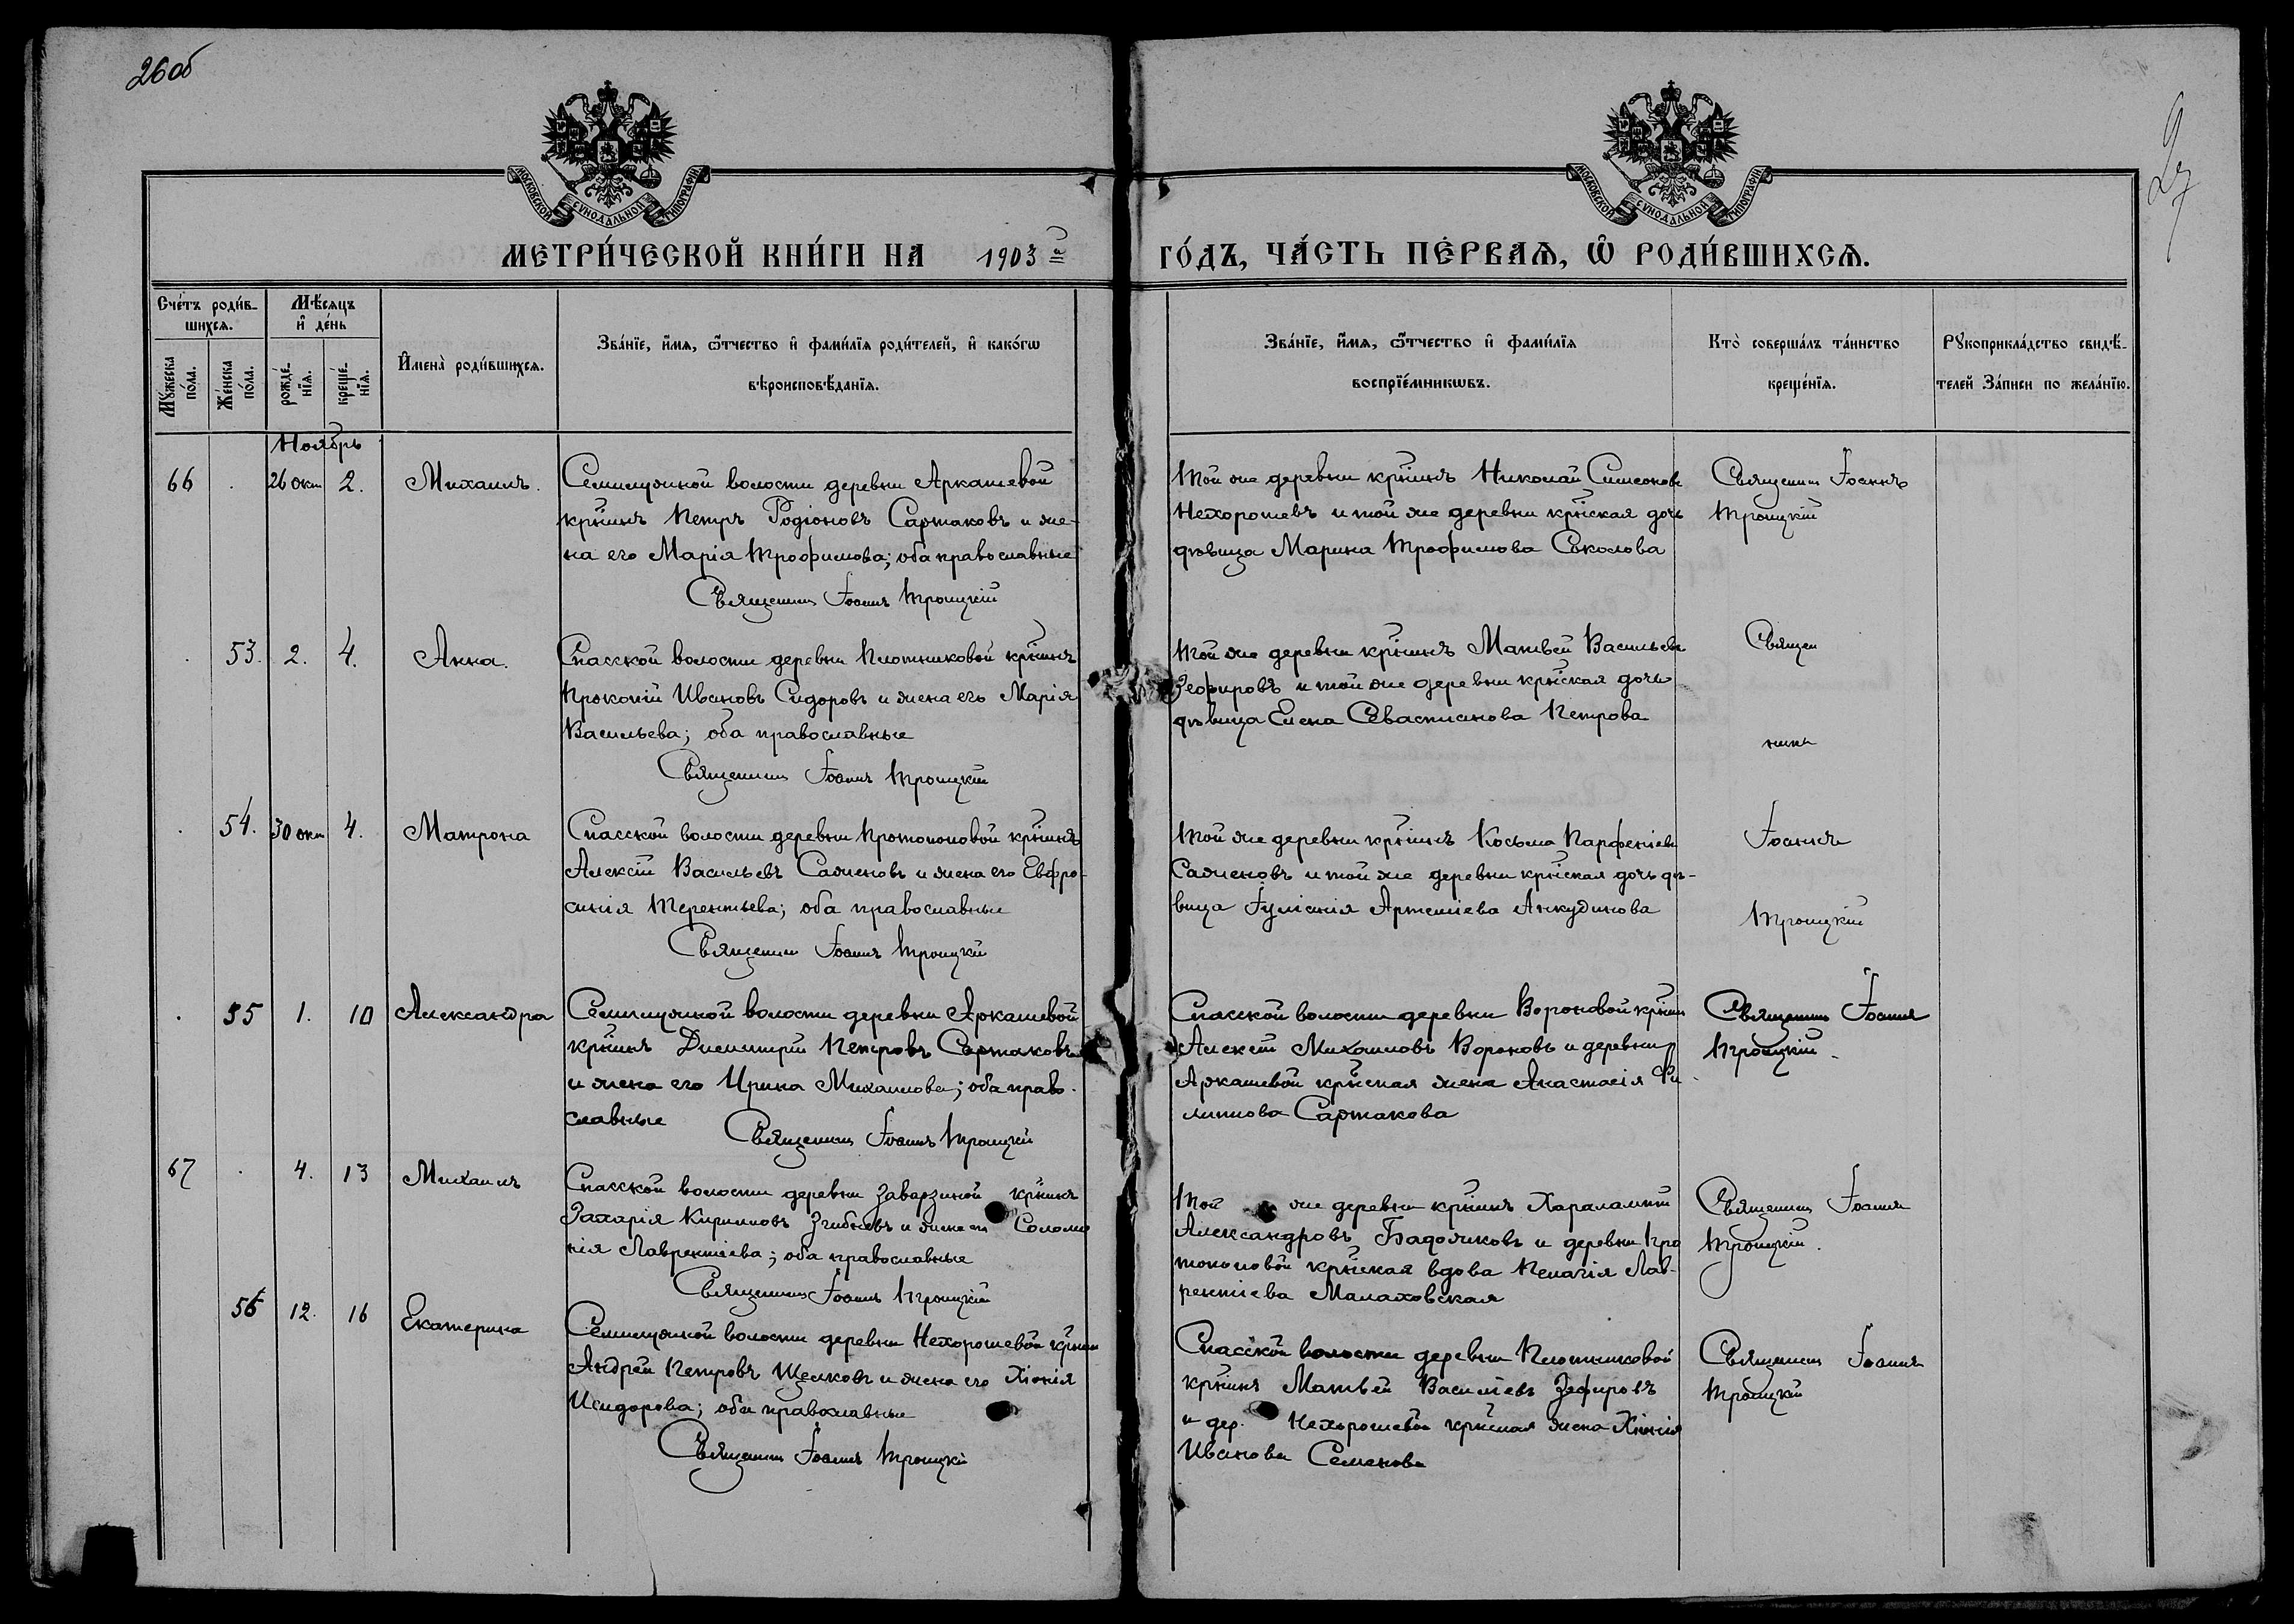 26 об
27
МОСКОВСКОЙ СѴНОДАЛЬНОЙ ТИПОГРАФІИ
МОСКОВСКОЙ СѴНОДАЛЬНОЙ ТИПОГРАФІИ
МЕТРИ́ЧЕСКОЙ КНИ́ГИ НА 1903 й ГО́ДЪ, ЧА́СТЬ ПЕ́РВАѦ, Ѡ҆ РОДИ́ВШИХСѦ.
Сче́тъ роди́в-
шихсѧ.
Мѣ́сѧцъ
и҆ де́нь
Мꙋ́жеска по́ла.
Же́нска по́ла.
рожде́нїѧ.
креще́нїѧ.
И҆мена̀ роди́вшихсѧ.
Зва́нїе, и҆́мѧ, ѻ҆́тчество и҆ фами́лїѧ роди́телей, и҆ како́гѡ
вѣроисповѣ́данїѧ.
Зва́нїе, и҆́мѧ, ѻ҆́тчество и҆ фами́лїѧ
воспрїе́мникѡвъ.
Кто̀ соверша́лъ та́инство
креще́нїѧ.
Рꙋкоприкла́дство свидѣ́-
телей За́писи по жела́нїю.
Ноябрь
66 . 26 окт 2. Михаилъ. Семилужной волости деревни Аркашевой
кр̃нинъ Петръ Родіоновъ Сартаковъ и же-
на его Марія Трофимова; оба православные
Священникъ Іоаннъ Троицкій
Той же деревни кр̃нинъ Николай Симеоновъ
Нехорошевъ и той же деревни кр̃нская дочь
дѣвица Марина Трофимова Соколова
Священникъ Іоаннъ
Троицкій
. 53. 2. 4. Анна. Спасской волости деревни Плотниковой кр̃нинъ
Прокопій Ивановъ Сидоровъ и жена его Марія
Васильева; оба православные
Священникъ Іоаннъ Троицкій
Той же деревни кр̃нинъ Матвей Васильевъ
Зефировъ и той же деревни кр̃нская дочь
дѣвица Елена Севастианова Петрова
Священ
никъ
. 54. 30 окт 4. Матрона Спасской волости деревни Протопоповой кр̃нинъ
Алексій Васильевъ Саженовъ и жена его Евфро-
синія Терентьева; оба православные
Священникъ Іоаннъ Троицкій
Той же деревни кр̃нинъ Косьма Парфеніевъ
Саженовъ и той же деревни кр̃нская дочь дѣ-
вица Іуліанія Артеміева Анкудинова
Іоаннъ
Троицкій
. 55 1. 10 Александра Семилужной волости деревни Аркашевой
кр̃нинъ Димитрій Петровъ Сартаковъ
и жена его Ирина Михаилова; оба право-
славные
Священникъ Іоаннъ Троицкій
Спасской волости деревни Вороновой кр̃нинъ
Алексій Михаиловъ Вороновъ и деревни
Аркашевой кр̃нская жена Анастасія Фи-
липпова Сартакова
Священникъ Іоаннъ
Троицкій
67 . 4. 13 Михаилъ Спасской волости деревни Заварзиной кр̃нинъ
Захарія Кирилловъ Згибневъ и жена его Соломо
нія Лаврентіева; оба православные
Священникъ Іоаннъ Троицкій
Той же деревни кр̃нинъ Харалампій
Александровъ Бадожковъ и деревни Про
топоповой кр̃нская вдова Пелагія Лав-
рентіева Малаховская
Священникъ Іоаннъ
Троицкій.
56 12. 16 Екатерина Семилужной волости деревни Нехорошевой кр̃нинъ
Андрей Петровъ Щелковъ и жена его Хіонія
Исидорова; оба православные
Священникъ Іоаннъ Троицкій
Спасской волости деревни Плотниковой
кр̃нинъ Матвей Василіевъ Зефировъ
и дер. Нехорошевой кр̃нская жена Хіонія
Иванова Семенова
Священникъ Іоаннъ
Троицкій